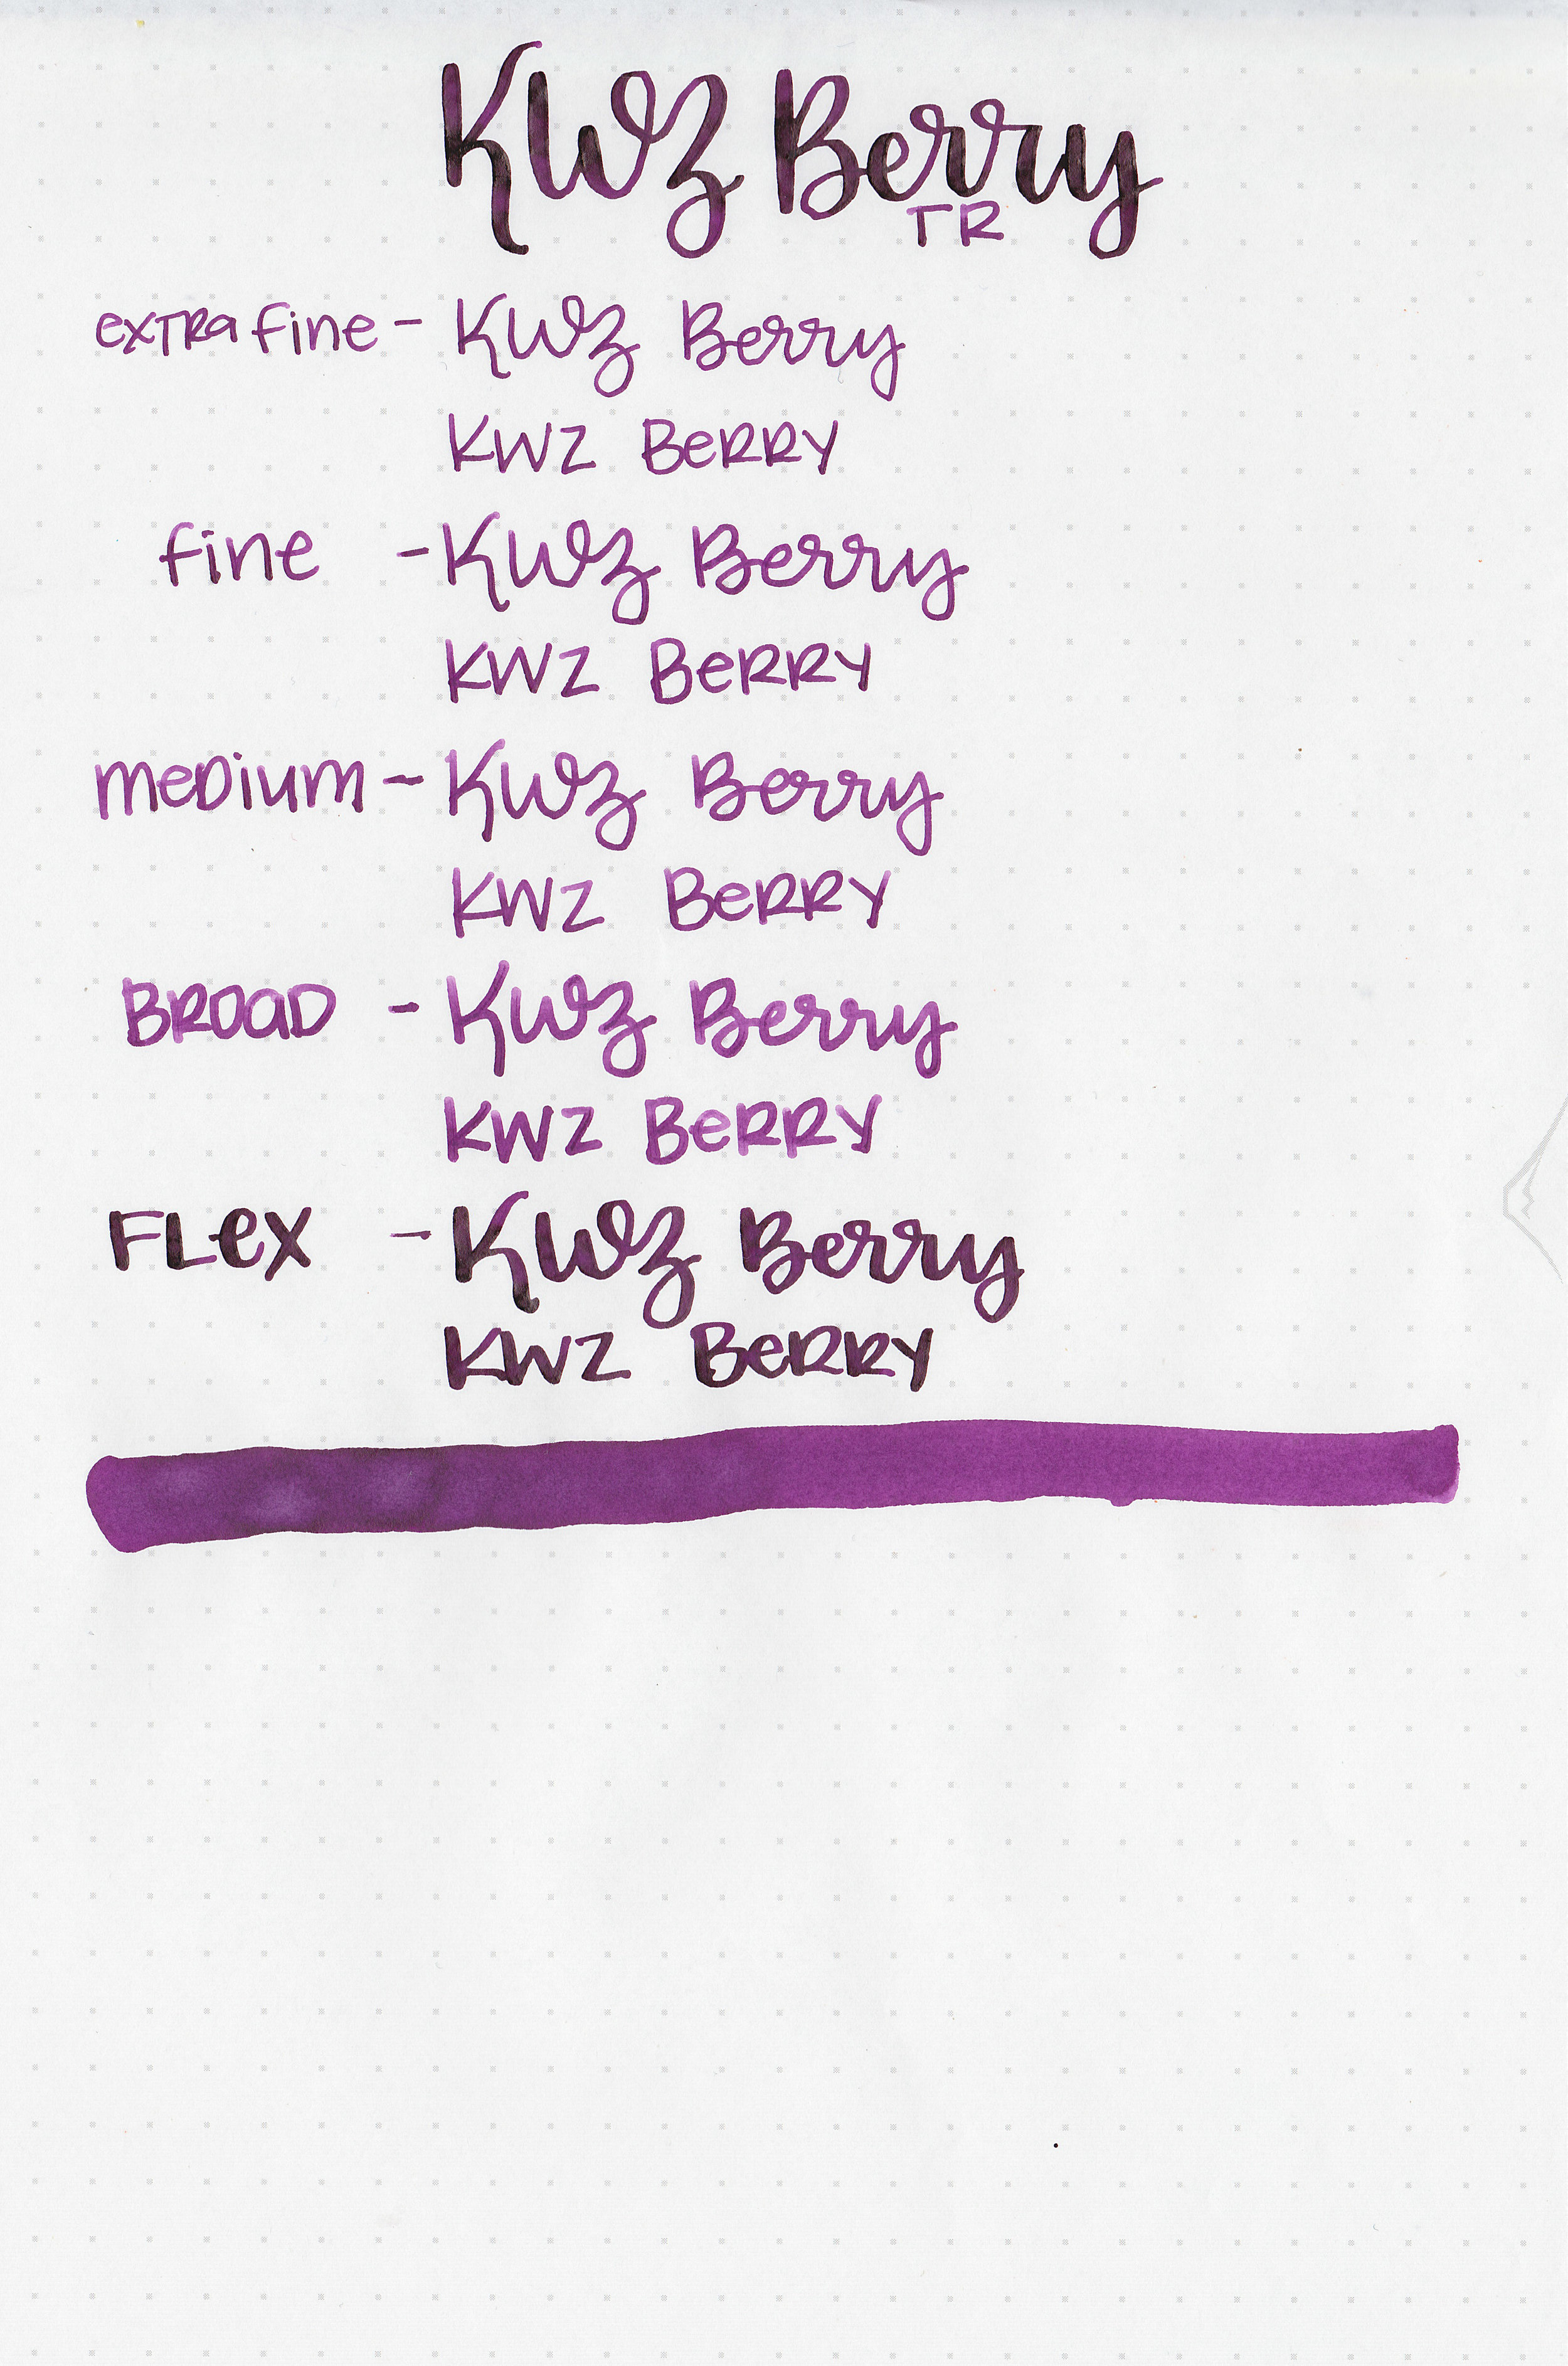 KWZ Berry
TR
exTRa fine - KWZ Berry
KWZ BeRRY
fine - KWZ Berry
KWZ BeRRY
meDium - KWZ Berry
KWZ BeRRY
BROaD - KWZ Berry
KWZ BeRRY
FLeX - KWZ Berry
KWZ BeRRY